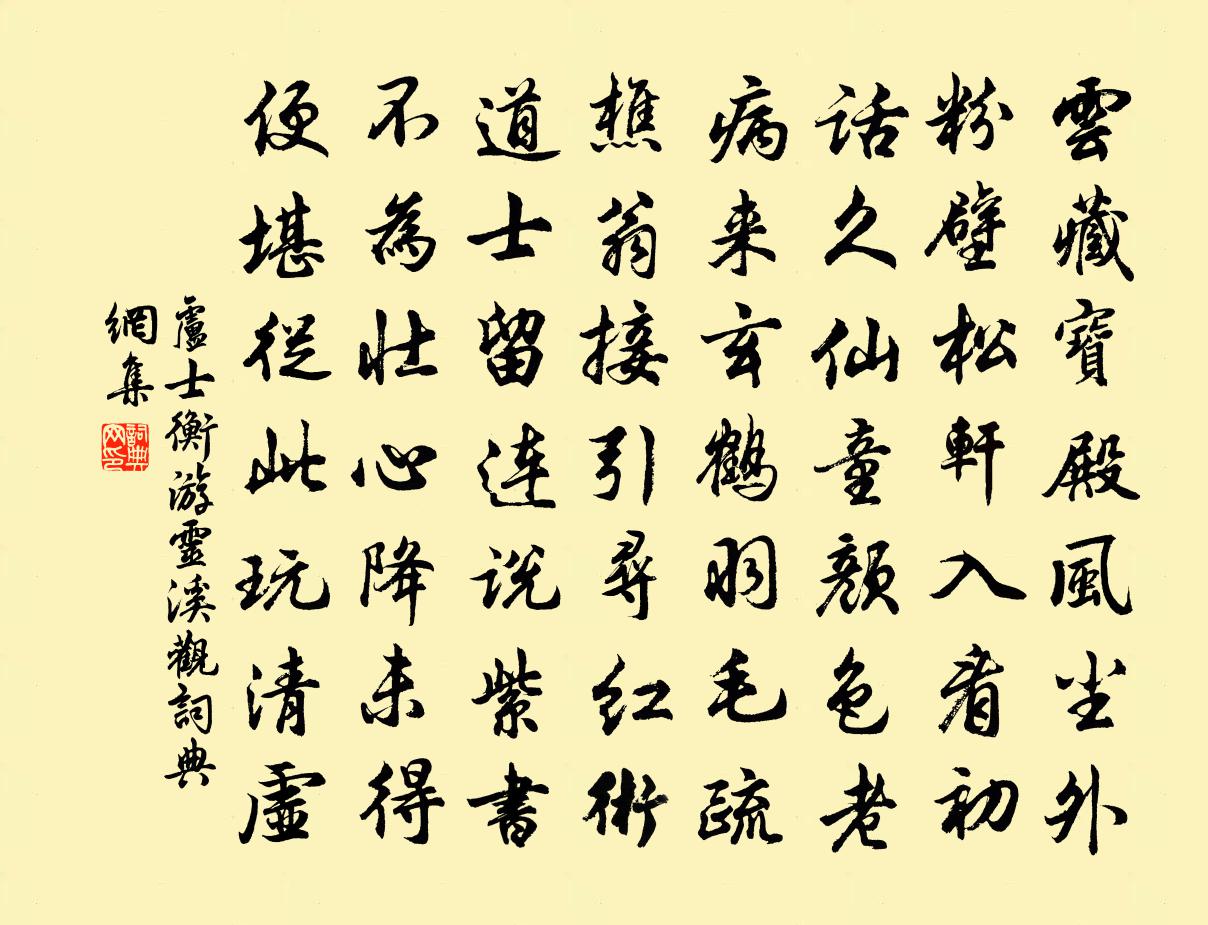 雲藏寶殿風尘外
粉壁松軒入看初
話久仙童顔色老
病来玄鶴羽毛疏
樵翁接引尋紅術
道士留連説紫書
不為壮心降未得
便堪從此玩清虛
盧士衡游靈溪觀詞典
網集
詞典
网印